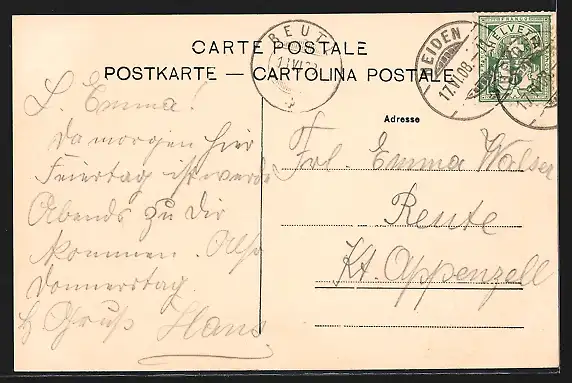 CARTE POSTALE
POSTKARTE — CARTOLINA POSTALE
REUTE
17.VI.08
HEIDEN
17.VI.08.
FRANCO
HELVETIA
Adresse
L. Emma!
Da morgen hier
Feiertag ist werde
Abends zu Dir
kommen. Also
Donnerstag.
Gruss Hans
Frl. Emma Walser
Reute
Kt. Appenzell